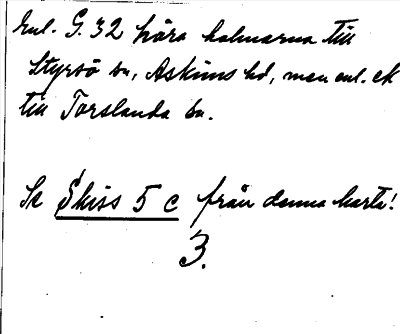 Enl. G. 32 höra holmarna till
Styrsö sn, Askims hd, men enl. ek
till Torslanda sn.
Se Skiss 5 c från denna karta!
3.